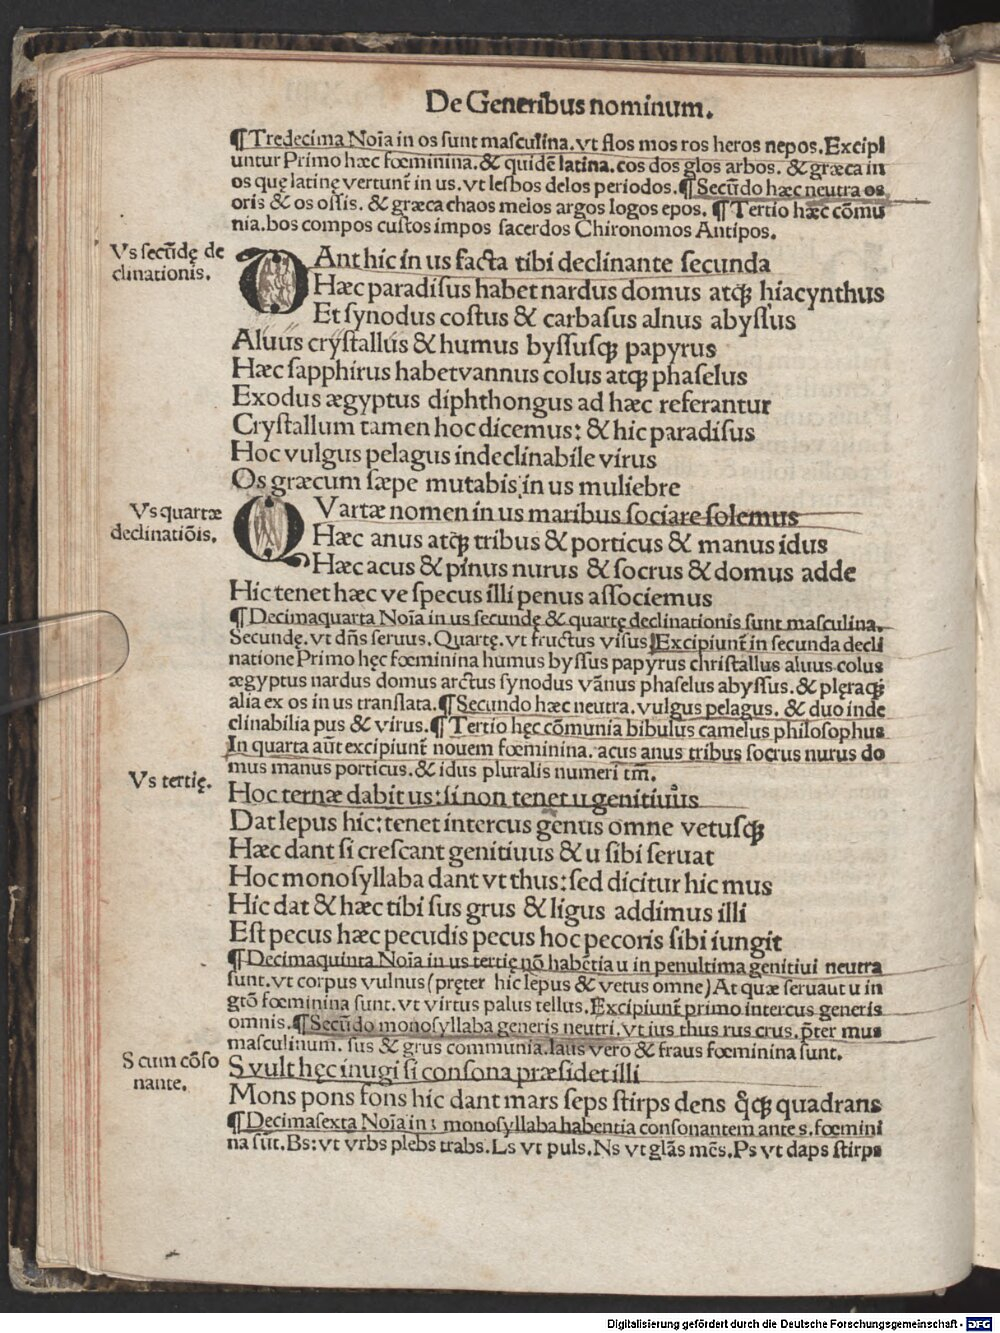 De Generibus nominum.
¶Tredecima Noīa in os sunt masculina. vt flos mos ros heros nepos. Excipi
untur Primo hæc fœminina. & quidē latina. cos dos glos arbos. & græca in
os quę latine vertunt̄ in us. vt lesbos delos periodos. ¶Secūdo hæc neutra os
oris & os ossis. & græca chaos melos argos logos epos. ¶Tertio hæc cōmu
nia. bos compos custos impos sacerdos Chironomos Antipos.
Vs secūdę de
clinationis.
DAnt hic in us facta tibi declinante secunda
Hæc paradisus habet nardus domus atqꝫ hiacynthus
Et synodus costus & carbasus alnus abyssus
Aluus crystallus & humus byssusqꝫ papyrus
Hæc sapphirus habet vannus colus atqꝫ phaselus
Exodus ægyptus diphthongus ad hæc referantur
Crystallum tamen hoc dicemus: & hic paradisus
Hoc vulgus pelagus indeclinabile virus
Os græcum sæpe mutabis in us muliebre
Vs quartæ
declinatiōis.
QVartæ nomen in us maribus sociare solemus
Hæc anus atqꝫ tribus & porticus & manus idus
Hæc acus & pinus nurus & socrus & domus adde
Hic tenet hæc ve specus illi penus associemus
¶Decimaquarta Noīa in us secundę & quartę declinationis sunt masculina.
Secundę. vt dn̄s seruus. Quartę. vt fructus visus ¶Excipiunt̄ in secunda decli
natione Primo hęc fœminina humus byssus papyrus christallus aluus colus
ægyptus nardus domus arctus synodus vānus phaselus abyssus. & plęraqꝫ
alia ex os in us translata. ¶Secundo hæc neutra. vulgus pelagus. & duo inde
clinabilia pus & virus. ¶Tertio hęc cōmunia bibulus camelus philosophus
In quarta aūt excipiunt̄ nouem fœminina. acus anus tribus socrus nurus do
mus manus porticus. & idus pluralis numeri tm̄.
Vs tertię.
Hoc ternæ dabit us: si non tenet u genitiuus
Dat lepus hic: tenet intercus genus omne vetusqꝫ
Hæc dant si crescant genitiuus & u sibi seruat
Hoc monosyllaba dant vt thus: sed dicitur hic mus
Hic dat & hæc tibi sus grus & ligus addimus illi
Est pecus hæc pecudis pecus hoc pecoris sibi iungit
¶Decimaquinta Noīa in us tertię nō habētia u in penultima genitiui neutra
sunt. vt corpus vulnus (pręter hic lepus & vetus omne) At quæ seruaut u in
gtō fœminina sunt. vt virtus palus tellus. Excipiunt̄ primo intercus generis
omnis. ¶Secūdo monosyllaba generis neutri. vt ius thus rus crus. p̄ter mus
masculinum. sus & grus communia. laus vero & fraus fœminina sunt.
S cum cōso
nante.
S vult hęc inugi si consona præsidet illi
Mons pons fons hic dant mars seps stirps dens q̄cqꝫ quadrans
¶Decimasexta Noīa in s monosyllaba habentia consonantem ante s. fœmini
na sūt. Bs: vt vrbs plebs trabs. Ls vt puls. Ns vt glās mēs. Ps vt daps stirps
Digitalisierung gefördert durch die Deutsche Forschungsgemeinschaft - DFG